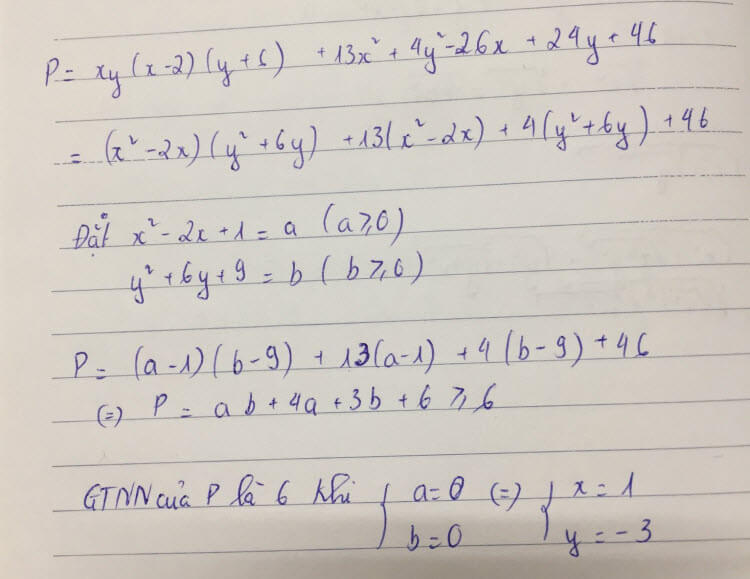 P = xy(x-2)(y+6) + 13x² + 4y² - 26x + 24y + 46
= (x² - 2x)(y² + 6y) + 13(x² - 2x) + 4(y² + 6y) + 46
Đặt x² - 2x + 1 = a (a ≥ 0)
y² + 6y + 9 = b (b ≥ 0)
P = (a-1)(b-9) + 13(a-1) + 4(b-9) + 46
(=) P = ab + 4a + 3b + 6 ≥ 6
GTNN của P là 6 khi { a = 0 (=) { x = 1
b = 0 y = -3